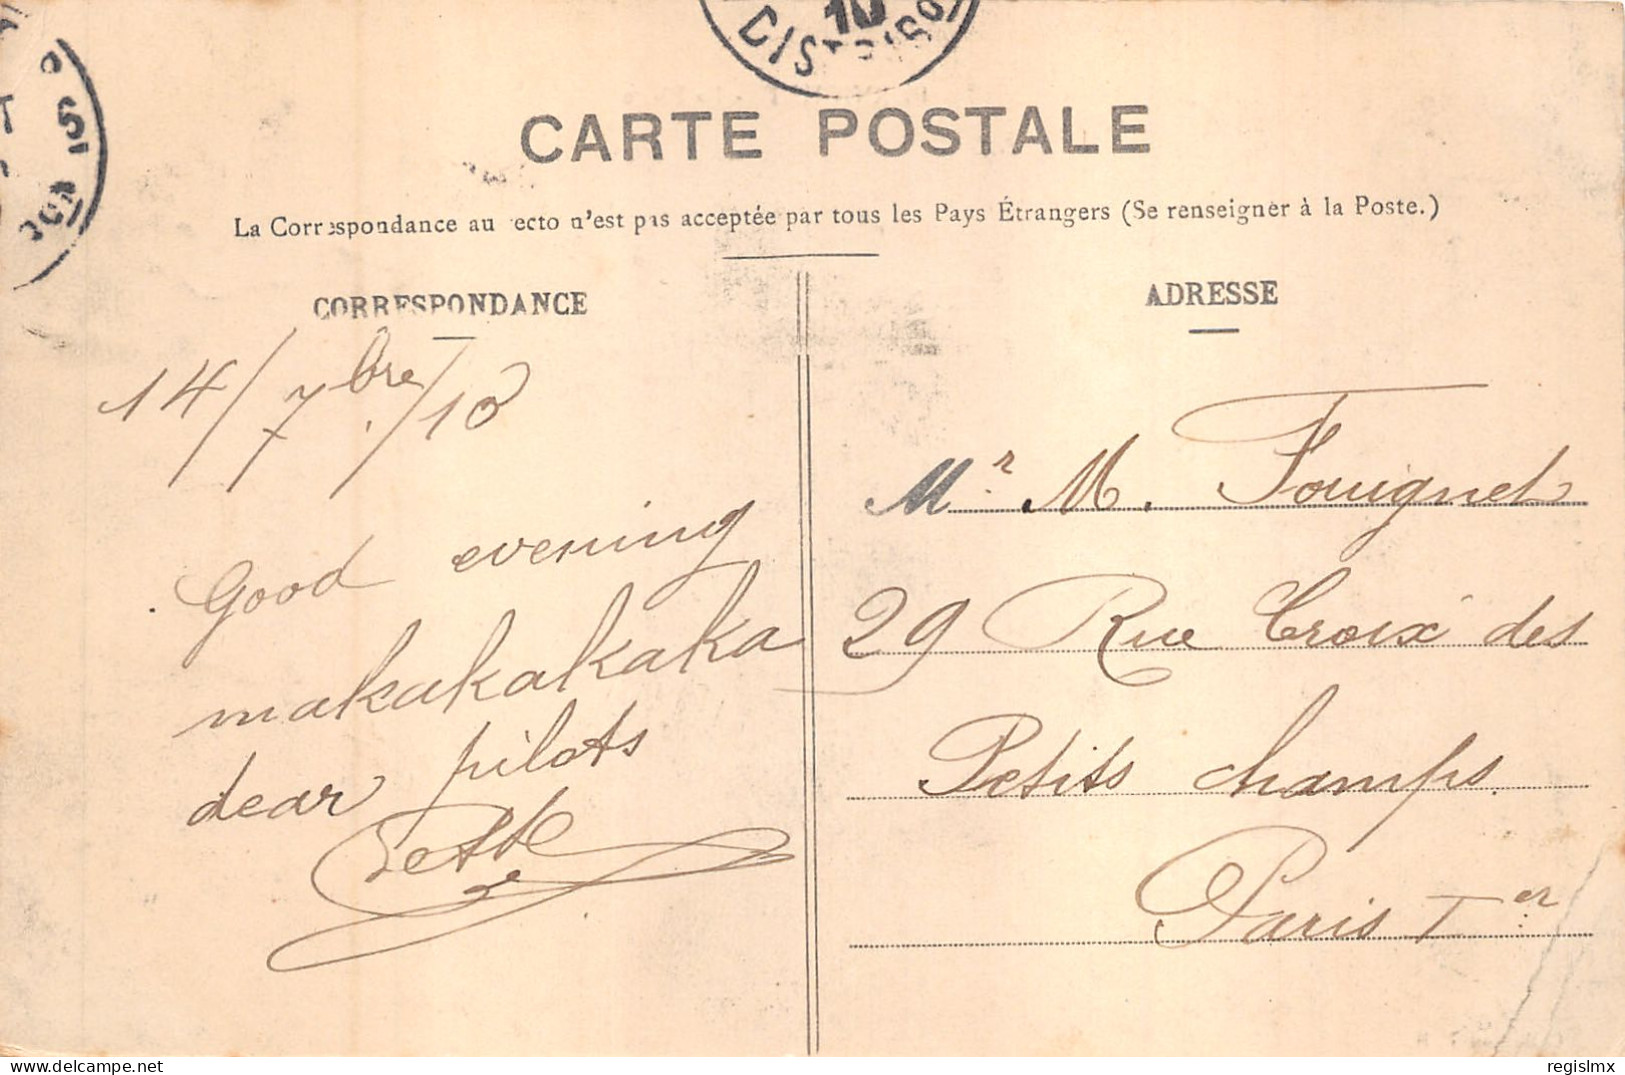 10
DIS
CARTE POSTALE
La Correspondance au recto n'est pas acceptée par tous les Pays Étrangers (Se renseigner à la Poste.)
CORRESPONDANCE
14/7bre/10
Good evening
makakakakaka
dear pilots
ADRESSE
Mr. M. Fouignet
29 Rue Croix des
Petits champs.
Paris Ier
regislmx